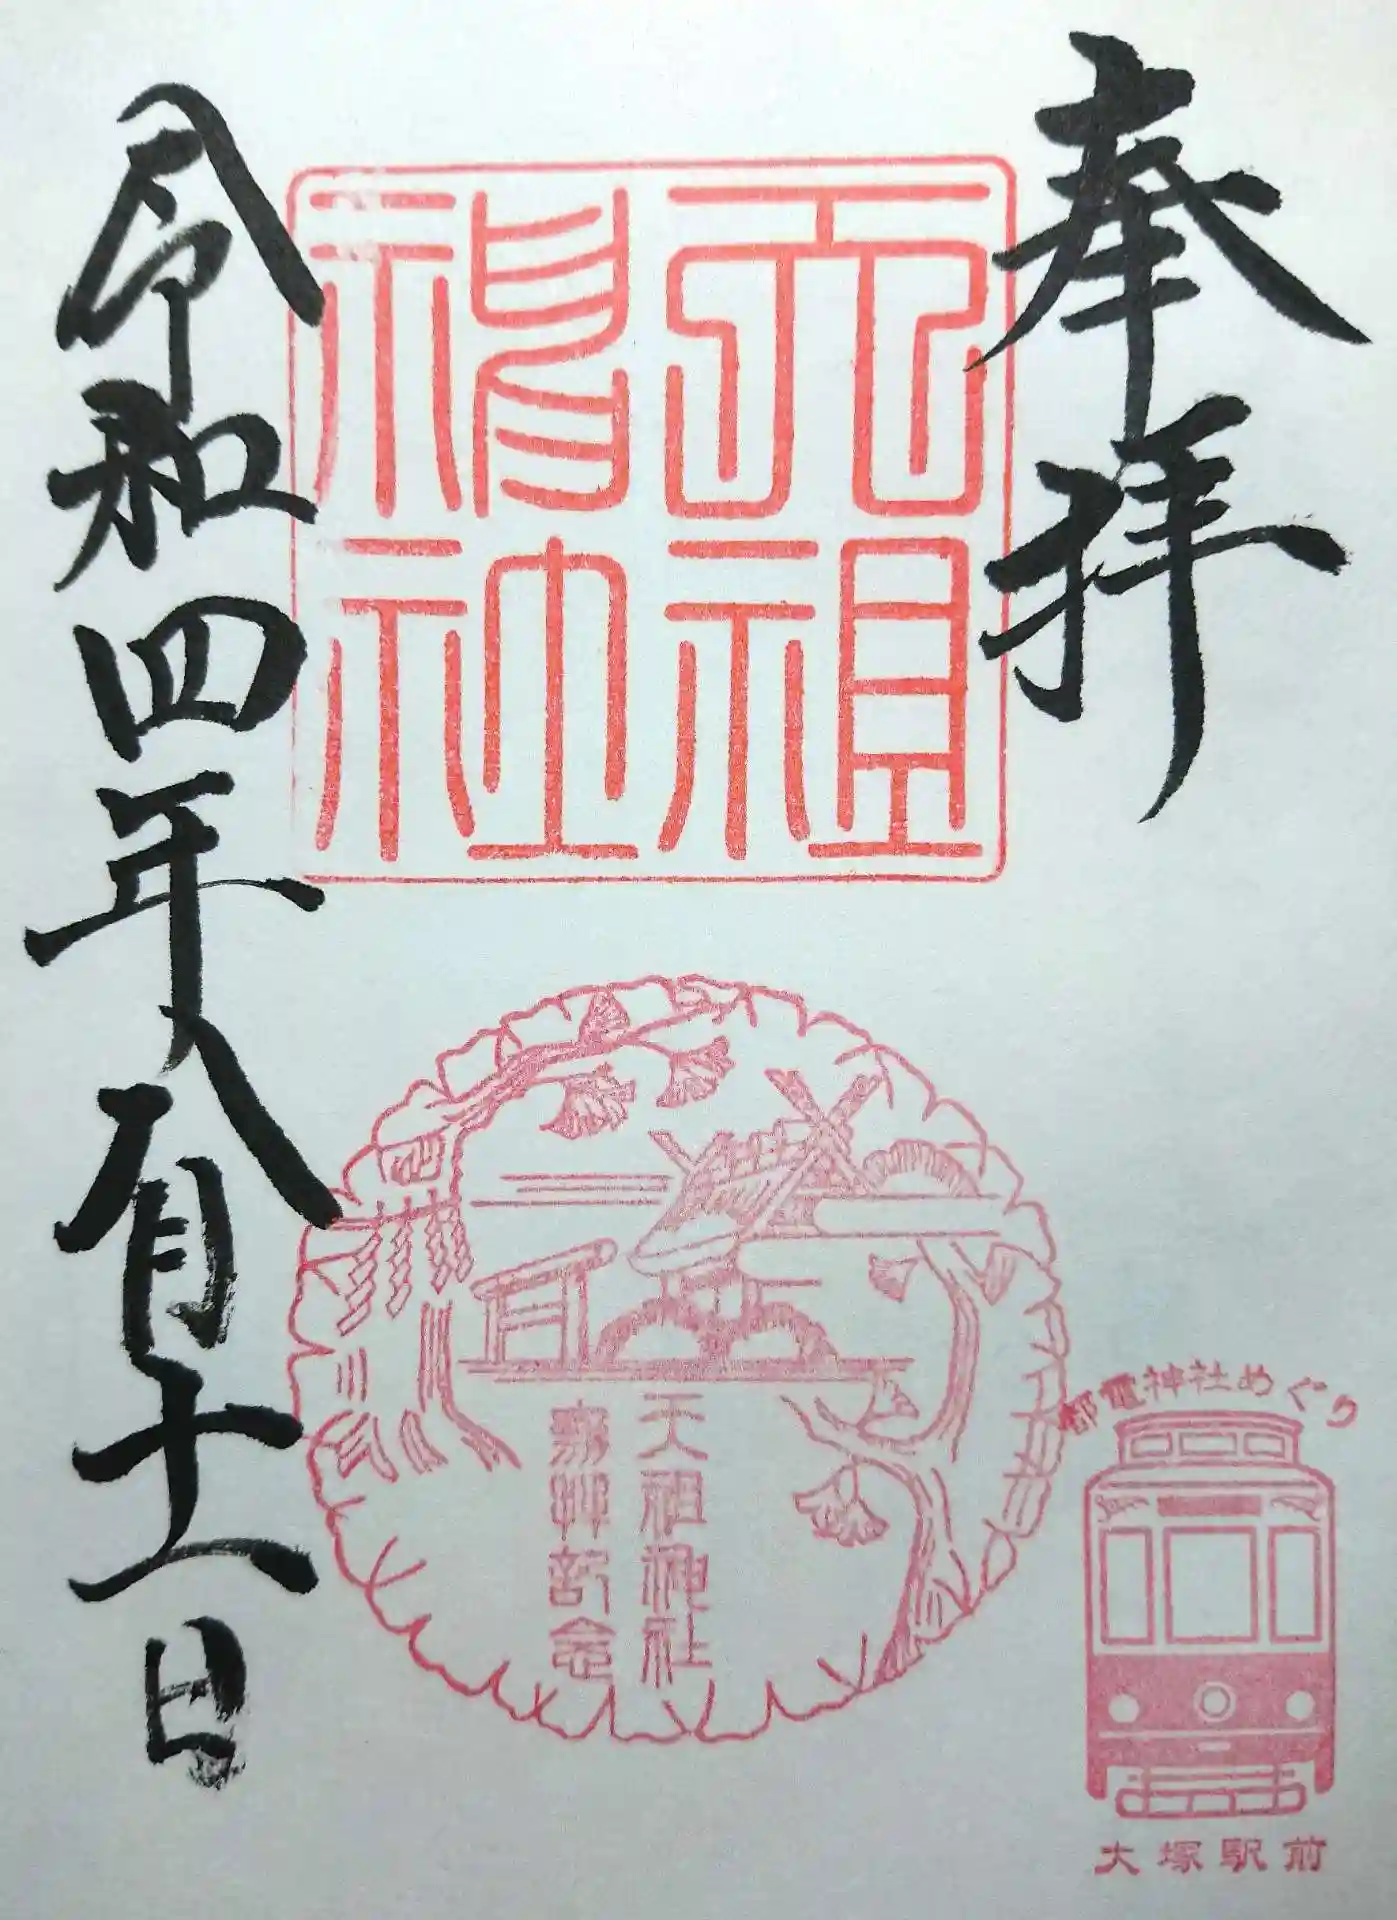 奉拝
天祖
神社
令和四年八月十一日
天祖神社
参拝記念
都電神社めぐり
大塚駅前